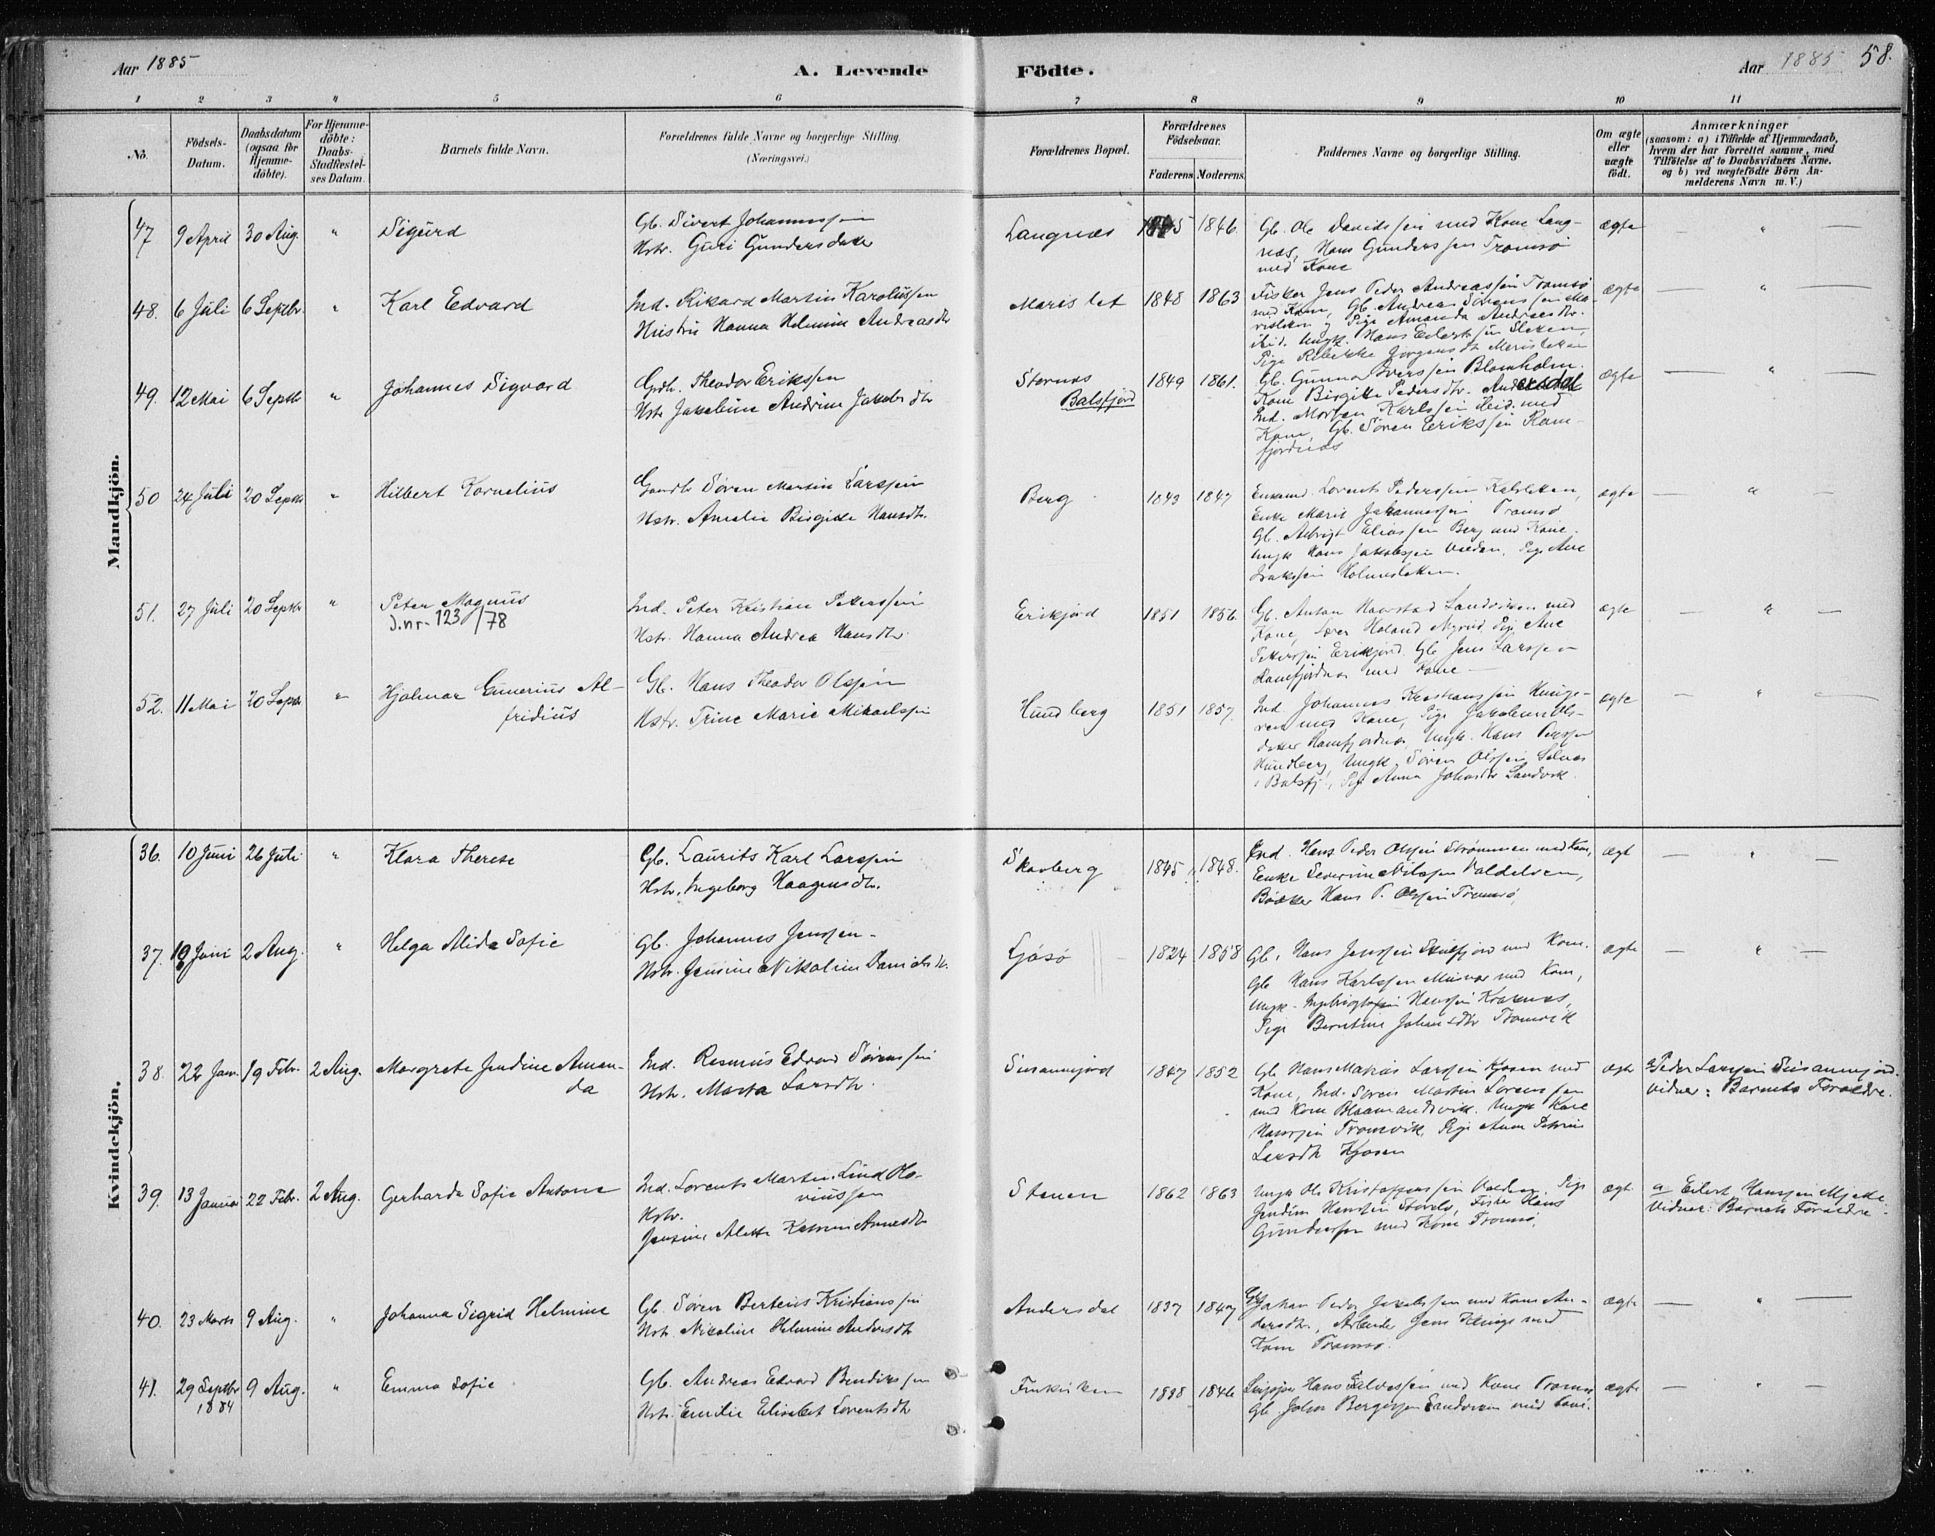 Aar 1885
A. Levende
Födte.
Aar 1885
58.
1 2 3 4 5 6 7 8 9 10 11
No.
Födsels-
Datum.
Daabsdatum
(ogsaa for
Hjemme-
döbte).
For Hjemme-
döbte:
Daabs-
Stadfæstel-
ses Datum.
Barnets fulde Navn.
Forældrenes fulde Navne og borgerlige Stilling.
(Næringsvei.)
Forældrenes Bopæl.
Forældrenes
Födselsaar.
Faderens. Moderens.
Faddernes Navne og borgerlige Stilling.
Om ægte
eller
uægte
födt.
Anmærkninger
(saasom: a) i Tilfælde af Hjemmedaab,
hvem der har forrettet samme, med
Tilföielse af to Daabsvidners Navne.
og b) ved uægtefödte Börn An-
melderens Navn m. V.)
Mandkjön.
47 9 April 30 Aug. " Sigurd
Gb. Sivert Johannessen
Hstr. Guri Gundersdatter
Langnæs 1845 1846.
Gb. Ole Davidssen med Kone Lang-
næs, Hans Gunderssen Tromsø
med Kone
ægte — " —
48. 6 Juli 6 Septbr. " Karl Edvard
Ind. Rikard Martin Karolussen
Hustru Hanna Helmine Andreasdtr
Marislet 1848 1863
Fisker Jens Peder Andreassen Tromsø
med Kone, Gb. Andreas Sørenssen Ma-
risletten og Pige Amanda Andreasdtr.
ibid. Ungk. Hans Eilertsen Sletten,
Pige Rebekka Jørgensdtr Marisletten
ægte — " —
49. 12 Mai 6 Septbr " Johannes Sigvard
Theodor Erikssen
Hstr Jakobine Andrine Jakobsdtr
Stornæs
Balsfjord
1849 1861.
Gb. Gunnar Iverssen Blomholm.
Kone Birgitte Pedersdtr. Andersdal
Ind. Morten Karlssen ibid. med
Kone, Gb. Søren Erikssen Ram-
fjordnæs
ægte — " —
50 24 Juli 20 Septbr " Hilbert Kornelius
Søren Martin Larssen
Hstr. Amalie Birgitte Hansdtr.
Berg 1843 1847
Lorents Pederssen
Enke Marie Johannessen Tromsø
Gb. Albrigt Eliassen Berg med Kone.
Ungk Hans Jakobssen Pige Ane
Isakssen Holmesletten.
ægte — " —
51. 27 Juli 20 Septbr " Peter Magnus
J.nr. 123/78
Ind. Peter Kristian Peterssen
Hstr. Hanna Andrea Hansdtr.
Erikjord 1851 1856.
Gb. Anton Havstad Sandviken med
Kone, Pige Ane
Peterssen Erikjord. Gb Jens Larssen
Ramfjordnæs med Kone —
ægte — " —
52. 11 Mai 20 Septbr " Hjalmar Gunerius Al-
fridius
Gb. Hans Theodor Olssen
Hstr. Trine Marie Mikaelssen
Hundberg 1851 1857.
Ind Johannes Kristianssen
med Kone, Pige
Ramfjordnæs, Ungk. Hans Perssen
Hundberg, Ungk. Søren Olssen Selnæs
i Balsfj., Pige Anna Johansdtr Sandvik.
ægte — " —
Kvindekjön.
36. 10 Juni 26 Juli " Klara Therese
Gb. Laurits Karl Larssen
Hstr. Ingeborg Haagensdtr.
Skavberg 1845 1848.
Ind. Hans Peder Olssen Strømmen med Kone,
Enke Severine Nilssen
Bødker Hans P. Olssen Tromsø
ægt — " —
37. 19 Juni 2 Aug. " Helga Alida Sofie
Gb. Johannes Jenssen
Hstr. Jensine Nikoline Danielsdtr.
Gjøsø 1824 1858
Gb. Hans Jenssen med Kone.
Gb Hans Karlssen med Kone,
Ungk. Hanssen
Pige Berntine Johansdtr Tromvik
ægte — " —
38. 22 Jan. 19 Febr. 2 Aug. Margrete Jendine Aman-
da
Ind. Rasmus Edvard Sørenssen
Hstr. Marta Larsdtr.
Susannejord 1847 1852
Gb Hans Matias Larssen Kjosen med
Kone, Ind. Søren Martin Lorenssen
med Kone Blaamandsvik. Ungk Kare
Hanssen Tromvik. Pige Anne Petrine
Larsdtr Kjosen
ægte
a) Peder Larssen Susannejord.
vidner: Barnets Forældre.
39. 13 Januar 22 Febr. 2 Aug. Gerharda Sofie Antone
Ind. Lorents Martin Lind Ola-
viussen
Hstr.
Jensine Alette Katrine Arnesdtr
Stenen 1862 1863
Ungk Ole Kristoffersen Pige
Jendine Hanssen Fisker Hans
Gunderssen med Kone Tromsø.
ægt.
a) Eilert Hanssen Mjelde
Vidner: Barnets Forældre.
40. 23 Marts 9 Aug. " Johanna Sigrid Helmine
Gb. Søren Berteus Kristianssen
Hstr. Nikoline Helmine Andersdtr
Andersdal 1837 1847
Gb Johan Peder Jakobssen med Kone An-
dersdtr., Arbeider Jens Klinge med
Kone Tromsø.
ægte — " —
41. 29 Septbr
1884
9 Aug. " Emma Sofie
Gb. Andreas Edvard Bendikssen
Hstr. Emilie Elisabet Lorentsdtr
Finkroken 1838 1846
Skipper Hans med Kone Tromsø
Gb. Johan med Kone.
ægte — " —